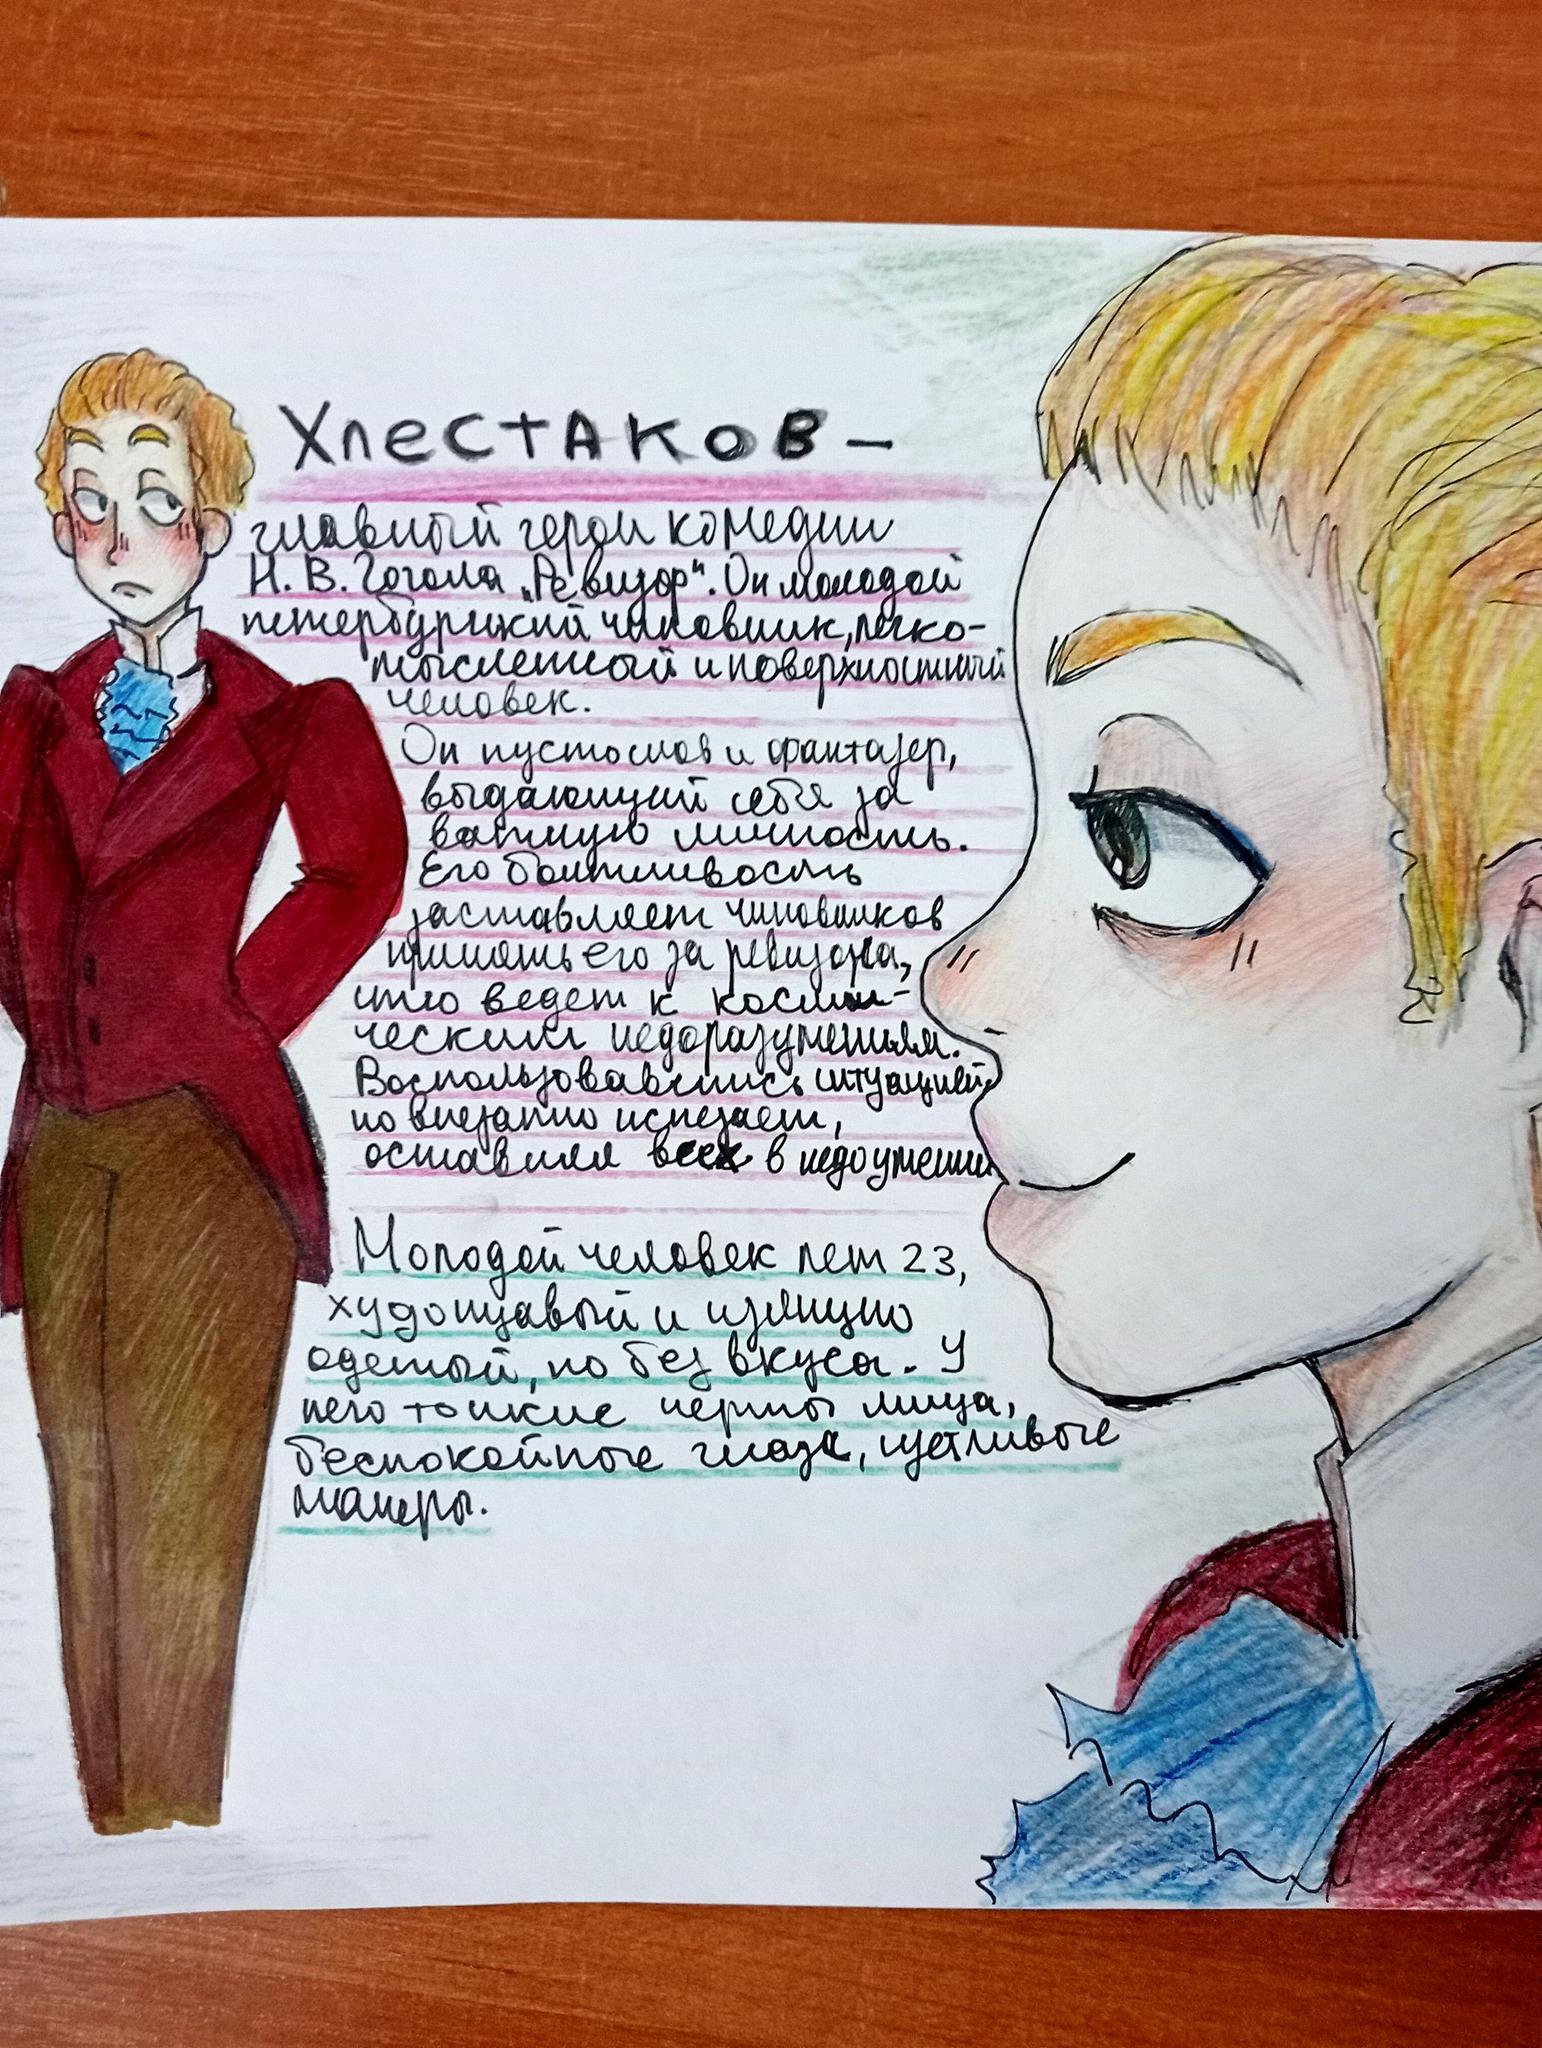 Хлестаков –
главный герой комедии
Н. В. Гоголя „Ревизор". Он молодой
петербургский чиновник, легко-
мысленный и поверхностный
человек.
Он пустослов и фантазер,
выдающий себя за
важную личность.
Его болтливость
заставляет чиновников
принять его за ревизора,
что ведет к косми-
ческим недоразумениям.
Воспользовавшись ситуацией,
но внезапно исчезает,
оставляя всех в недоумении
Молодой человек лет 23,
худощавый и изящно
одетый, но без вкуса. У
него тонкие черты лица,
беспокойные глаза, суетливые
манеры.